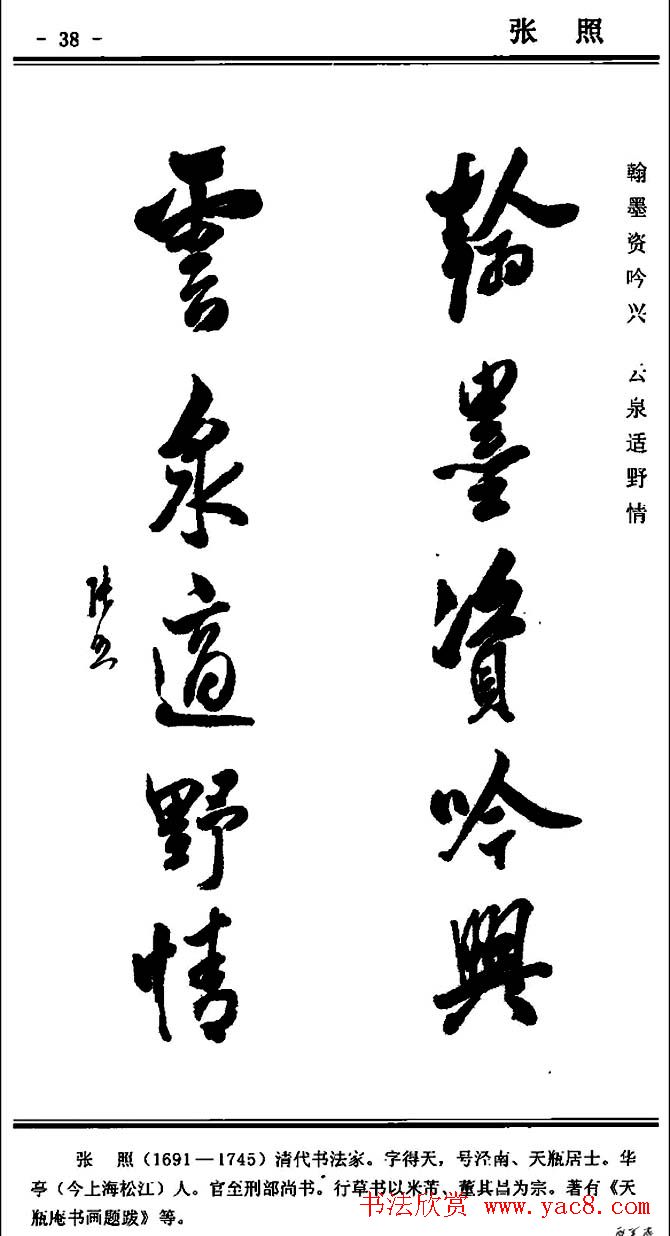 - 38 -
张 照
翰墨资吟兴 云泉适野情
翰墨資吟興
雲泉適野情
张照
张 照(1691—1745)清代书法家。字得天,号泾南、天瓶居士。华
亭(今上海松江)人。官至刑部尚书。行草书以米芾、董其昌为宗。著有《天
瓶庵书画题跋》等。
书法欣赏 www.yac8.com